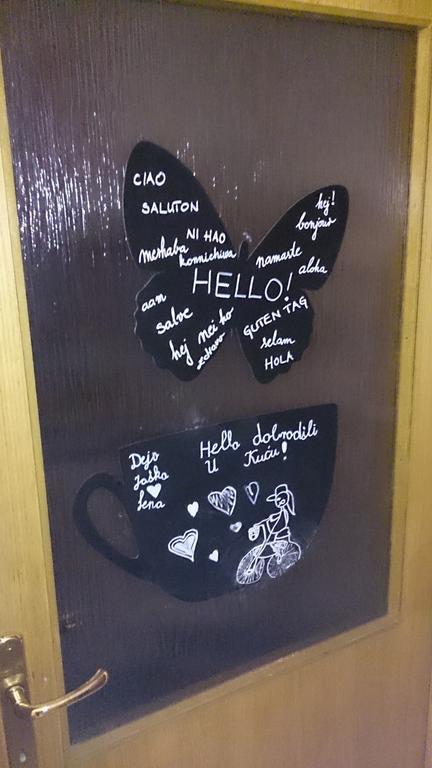 CIAO
SALUTON
NI HAO
merhaba
konnichiwa
hej!
bonjour
namaste
aloha
HELLO!
salve
hej
nei ho
zdravo
GUTEN TAG
selam
HOLA
Hello dobrodošli
U Kuću!
Dejo
Jaśko
Lena